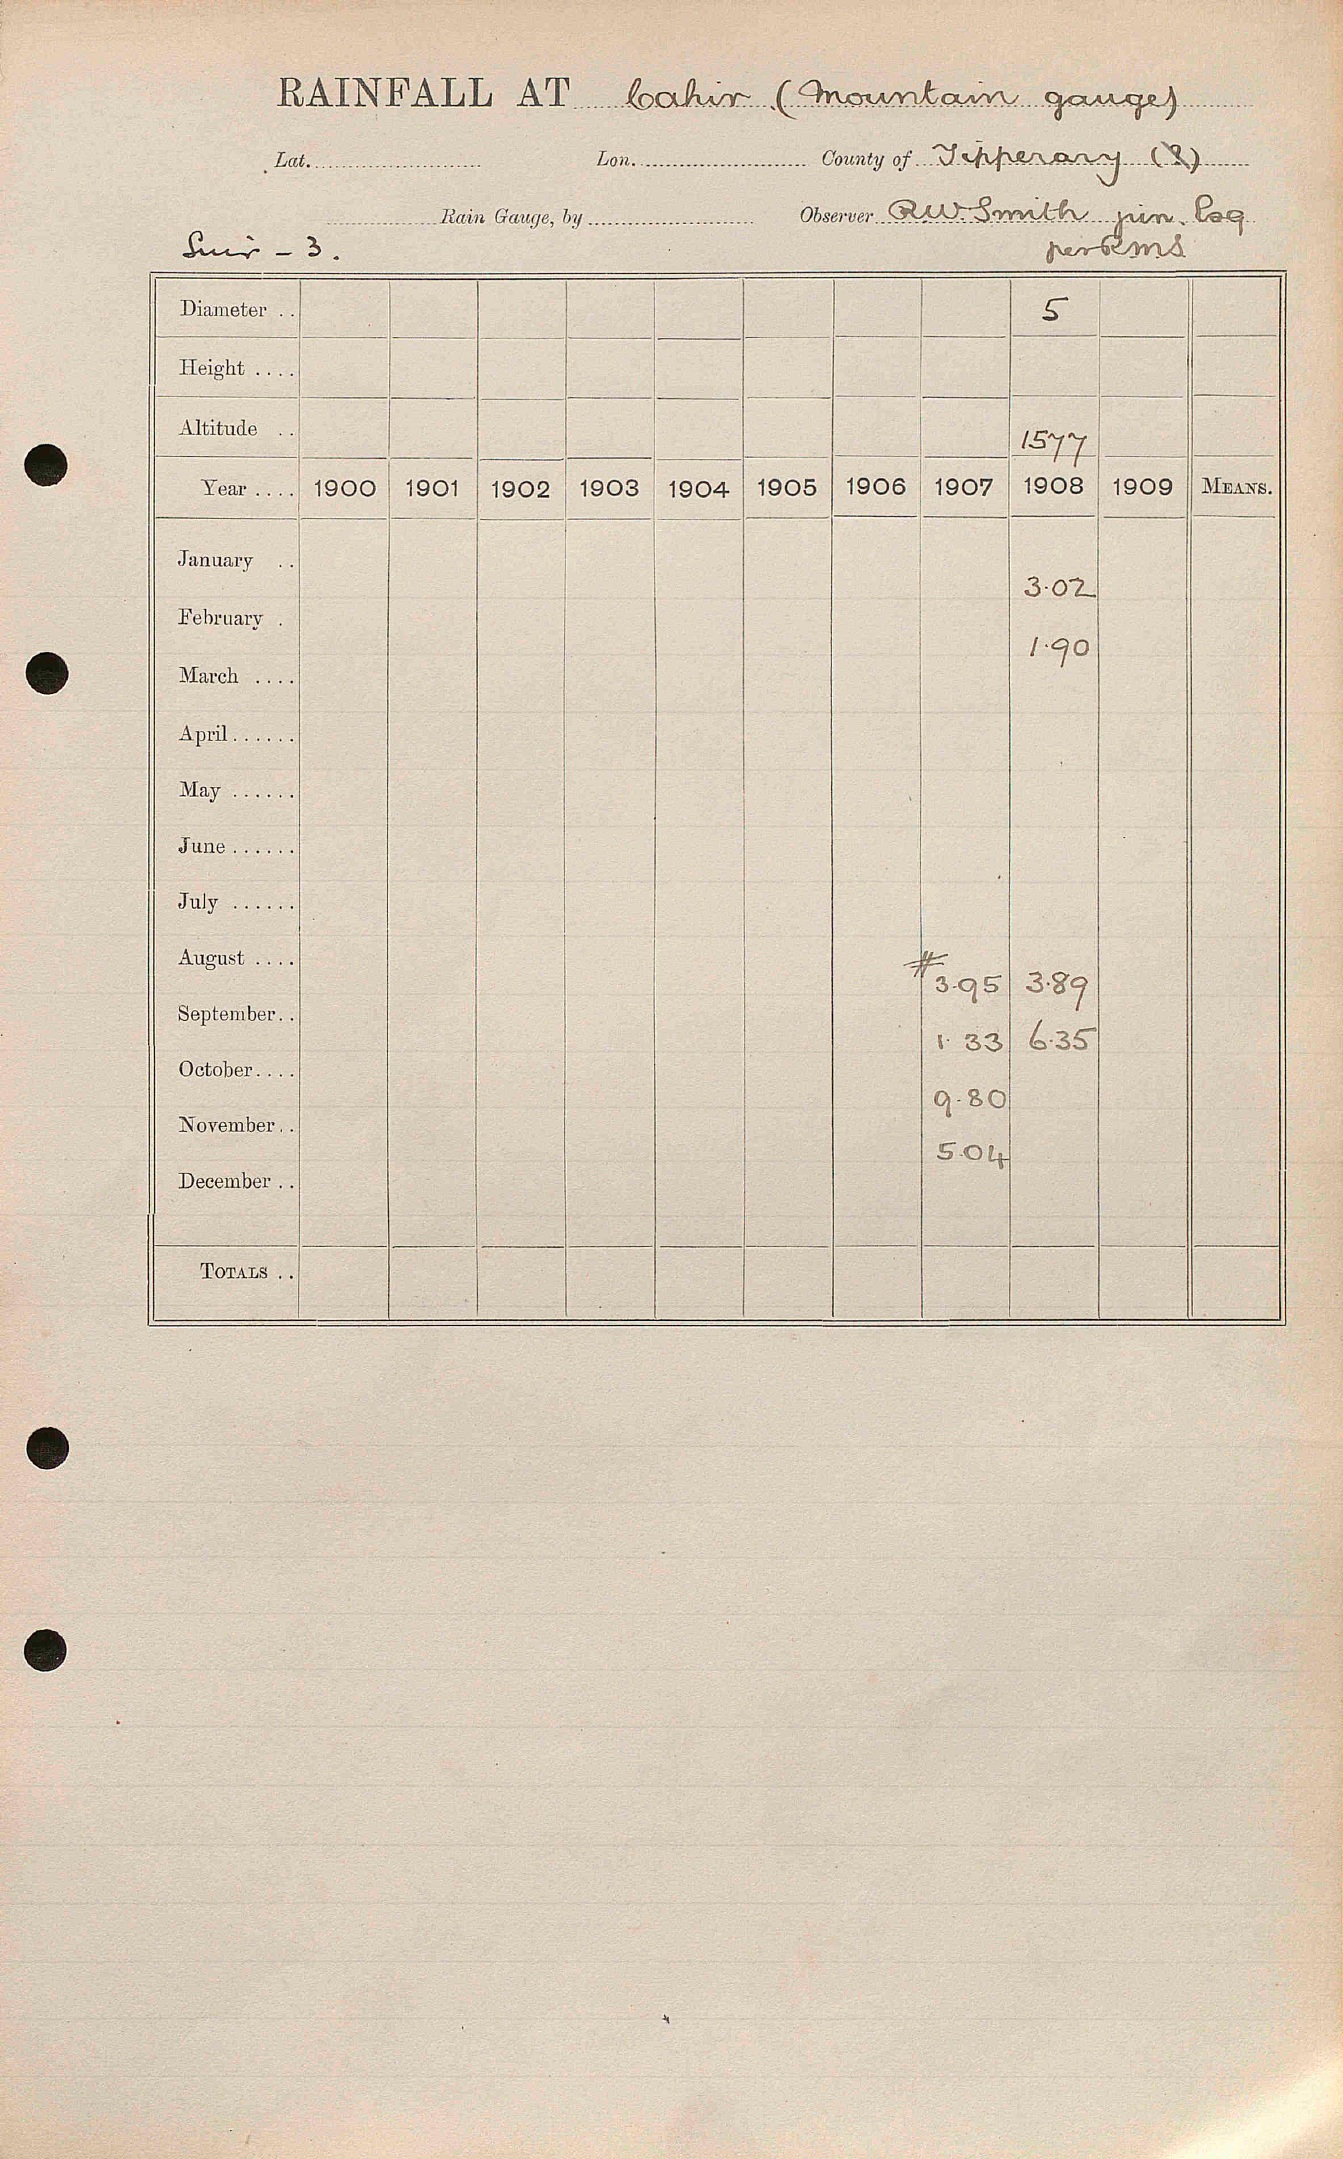 RAINFALL AT Cahir (Mountain gauge)
Lat. Lon. County of Tipperary (8)
Rain Gauge, by Observer R.W. Smith jun. Esq
Suir - 3. per RMS
Diameter . . 5
Height . . . .
Altitude . . 1577
Year . . . . 1900 1901 1902 1903 1904 1905 1906 1907 1908 1909 MEANS.
January . .
3.02
February .
1.90
March . . . .
April . . . . . .
May . . . . . .
June . . . . . .
July . . . . . .
August . . . .
# 3.95 3.89
September . .
1.33 6.35
October . . . .
9.80
November . .
5.04
December . .
TOTALS . .